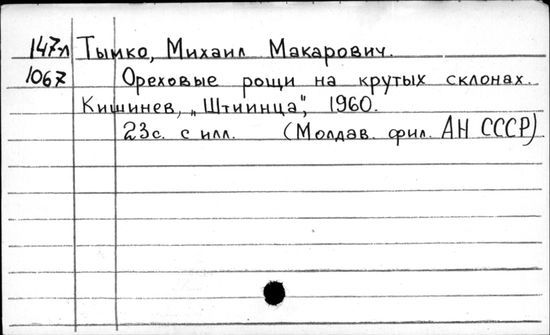 147л Тымко, Михаил Макарович.
1067 Ореховые рощи на крутых склонах.
Кишинев, „Штиинца", 1960.
23с. с илл. (Молдав. фил. АН СССР)